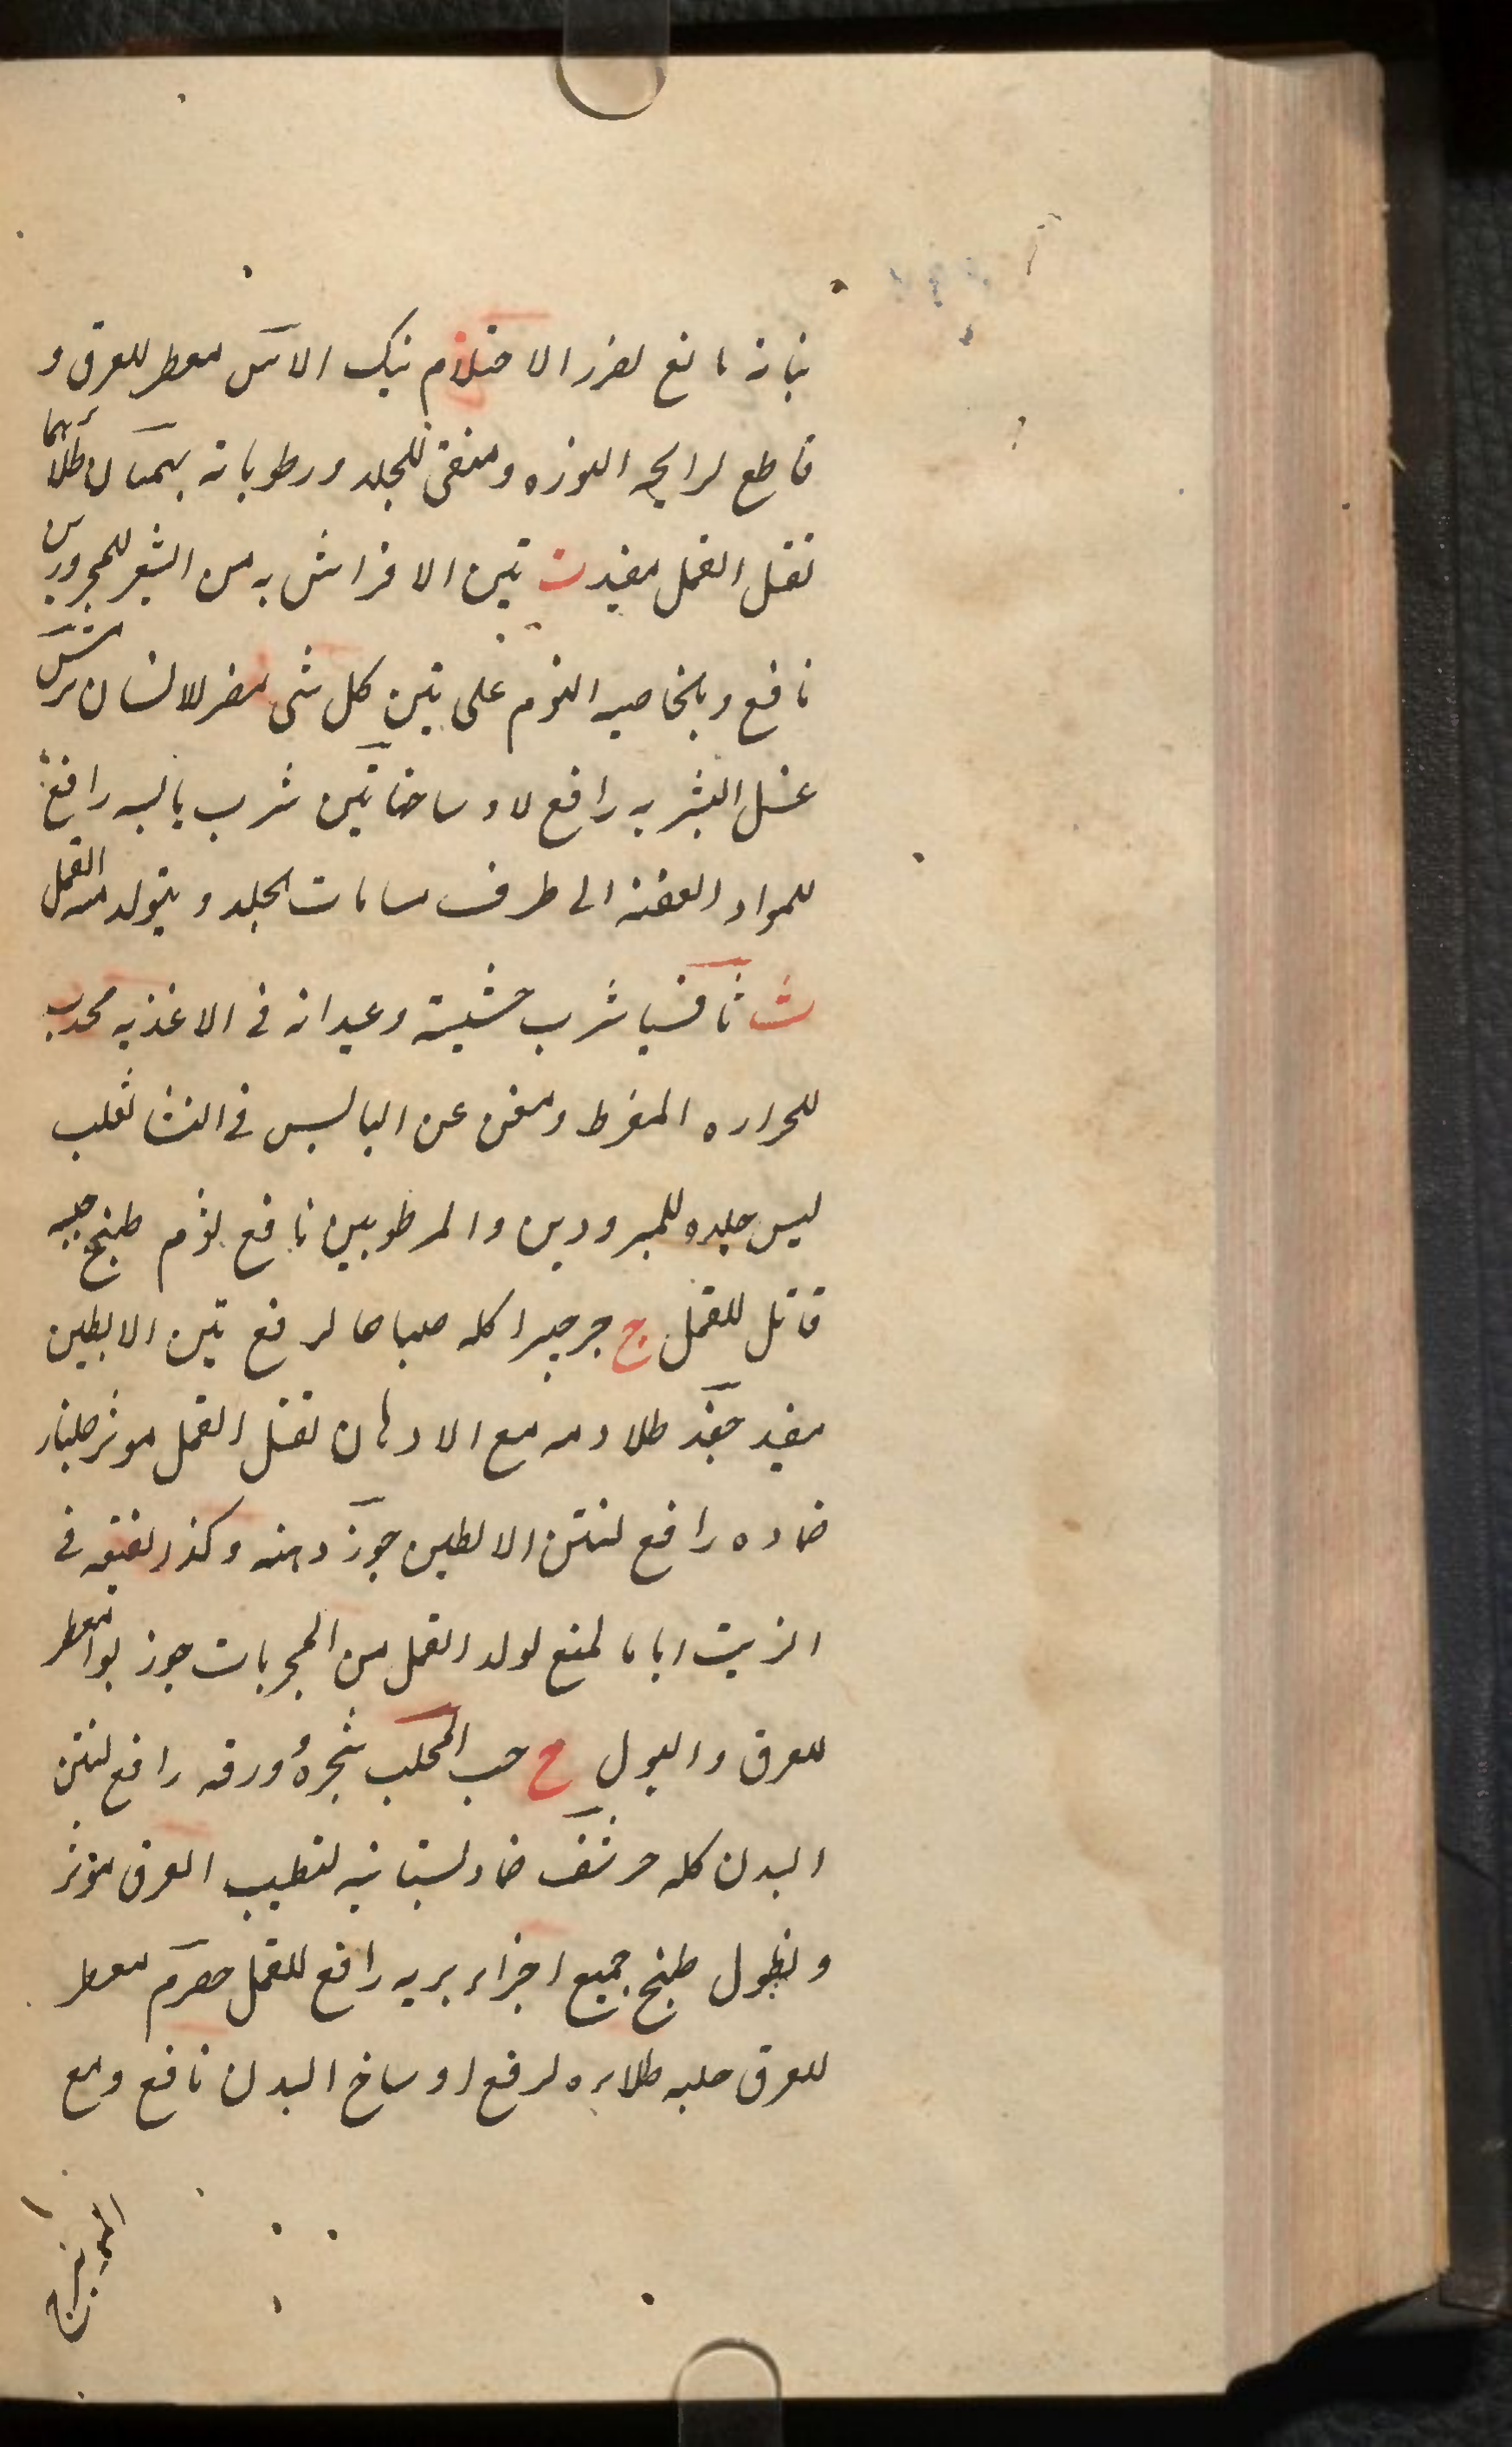 نباته مانع لضرر الاحتلام بنك الاس معطر للعرق و
قاطع لرايحه النوره ومنقى للجلد ورطوباته بهمنان طلائهما
لقتل القمل مفيد ت تبن الافتراش به من الشعير للمحرورين
نافع وبالخاصيه النوم على تبن كل شى مضر للانسان ترمس
غسل البشر به رافع لاوساخها تين شرب يابسه رافع
للمواد العفنه الى طرف مسامات الجلد ويتولد منه القمل
ث ثافسيا شرب حشيشة وعيدانه فى الاغذيه محدث
للحراره المفرط ومغن عن البالبس فى الشتا ثعلب
لبس جلده للمبرودين والمرطوبين نافع ثوم طبخ جبليه
قاتل للقمل ج جرجير اكله صباحا لرفع نتن الابطين
مفيد جغد طلا دمه مع الادهان لقتل القمل موثر جلنار
ضماده رافع لنتن الابطين جوز دهنه وكذا نقيعه فى
الزيت اياما لمنع تولد القمل من المجربات جوز بوا معطر
للعرق والبول ح حب المحلب شجره وورقه رافع لنتن
البدن كله حرشف ضماد بستانيه لتطيب العرق موثر
ونطول طبخ جميع اجزاء بريه رافع للقمل حصرم معطر
للعرق حلبه طلا بزره لرفع اوساخ البدن نافع ومع